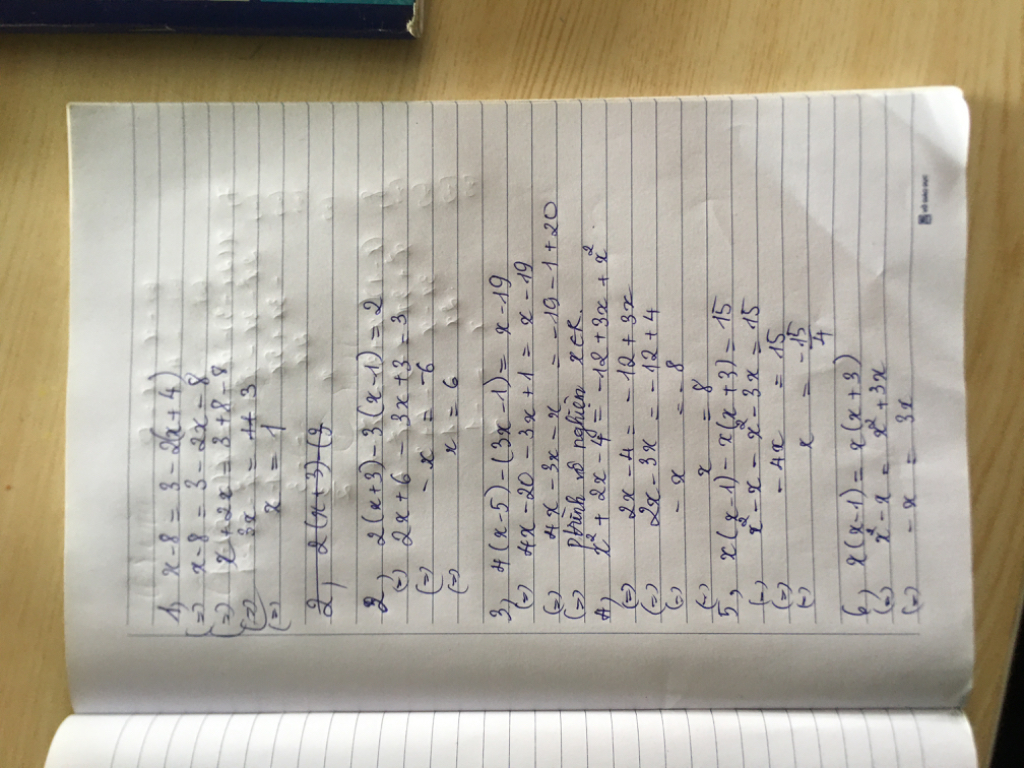 1) x - 8 = 3 - 2(x + 4)
(=) x - 8 = 3 - 2x - 8
(=) x + 2x = 3 + 8 - 8
(=) 3x = 3
(=) x = 1
2) 2(x + 3) - (3
2) 2(x + 3) - 3(x - 1) = 2
(=) 2x + 6 - 3x + 3 = 3
(=) - x = -6
(=) x = 6
3) 4(x - 5) - (3x - 1) = x - 19
(=) 4x - 20 - 3x + 1 = x - 19
(=) 4x - 3x - x = -19 - 1 + 20
(=) ptrình vô nghiệm x∈R.
4) x² + 2x - 4 = -12 + 3x + x²
(=) 2x - 4 = -12 + 3x
(=) 2x - 3x = -12 + 4
(=) - x = -8
(=) x = 8
5) x(x - 1) - x(x + 3) = 15
(=) x² - x - x² - 3x = 15
(=) - 4x = 15
(=) x = -15/4
6) x(x - 1) = x(x + 3)
(=) x² - x = x² + 3x
(=) - x = 3x